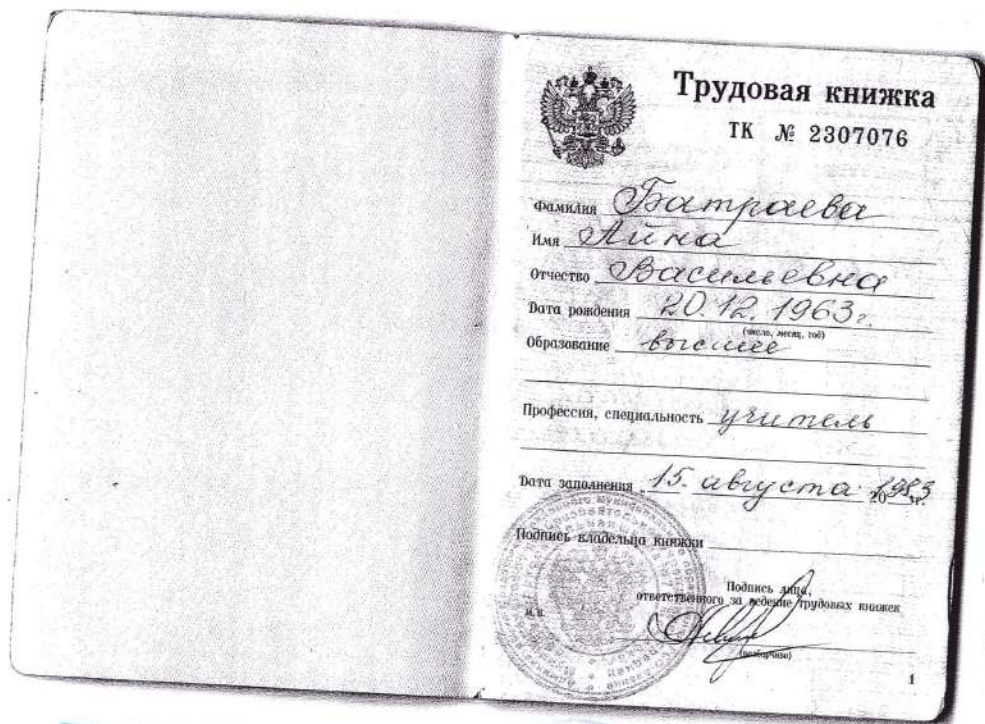 Трудовая книжка
ТК № 2307076
Фамилия Батраева
Имя Айна
Отчество Васильевна
Дата рождения 20.12.1963г.
(число, месяц, год)
Образование высшее
Профессия, специальность учитель
Дата заполнения 15. августа 20 1983 г.
Подпись владельца книжки
Подпись лица,
ответственного за ведение трудовых книжек
М.П.
(разборчиво)
1